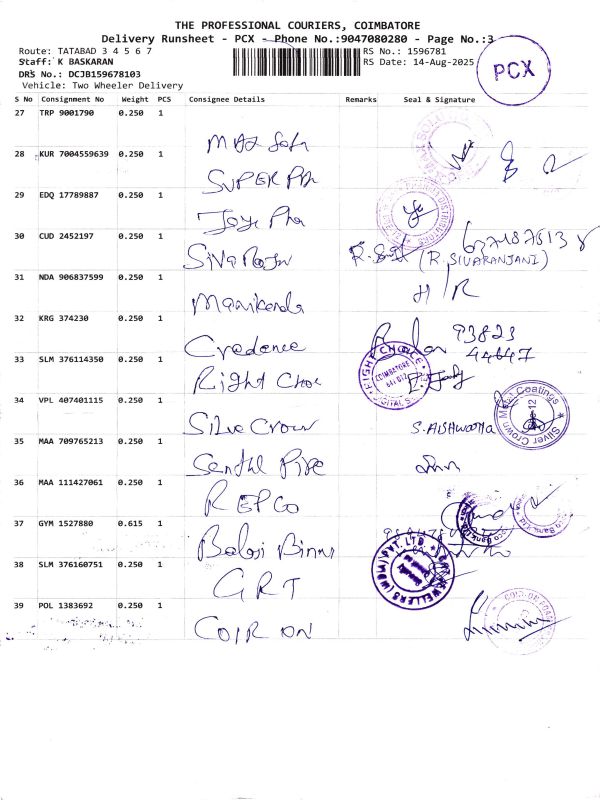 THE PROFESSIONAL COURIERS, COIMBATORE
Delivery Runsheet - PCX - Phone No.:9047080280 - Page No.:3
Route: TATABAD 3 4 5 6 7
RS No.: 1596781
Staff: K BASKARAN
RS Date: 14-Aug-2025
DRS No.: DCJB159678103
PCX
Vehicle: Two Wheeler Delivery
S No Consignment No Weight PCS Consignee Details Remarks Seal & Signature
27 TRP 9001790 0.250 1
28 KUR 7004559639 0.250 1
SUPER
29 EDQ 17789887 0.250 1
Pha
30 CUD 2452197 0.250 1
Siva
(R. SIVARANJANI)
31 NDA 906837599 0.250 1
H/R
Manikanda
32 KRG 374230 0.250 1
Credence
93823
44647
33 SLM 376114350 0.250 1
Right Choc
RIGHT CHOICE
COIMBATORE
641 012
34 VPL 407401115 0.250 1
Silve Crown
S. AISHWARYA
Silver Crown Metal Coatings
35 MAA 709765213 0.250 1
Senthil Pipe
36 MAA 111427061 0.250 1
REPCO
37 GYM 1527880 0.615 1
Balaji
38 SLM 376160751 0.250 1
GRT
39 POL 1383692 0.250 1
COIR ON